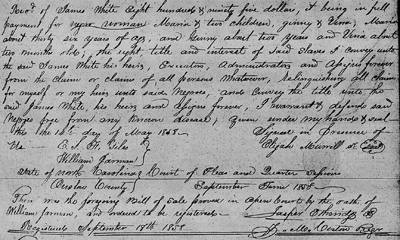 Rec'd. of James White Eight hundred & ninety five dollars, it being in full
payment for negro woman Maria & two children, ginny & Una; Maria
about thirty six years of age, and ginny about two years and Una about
two months old; the right title and interest of said slaves I convey unto
the said James White his heirs, Executors, Administrators and Assigns forever
from the claim or claims of all persons Whatever, relinquishing all claims
for myself or my heirs unto said Negroes, and convey the title unto the
said James White his heirs and assigns forever, I warrant & defend said
Negroes free from any known disease; given under my hand & seal
this the 14th day of May 1858. Signed in Presence of
E. Elijah Murrill Seal
William Jarman
State of North Carolina Court of Pleas and Quarter Sessions
Onslow County September Term 1858
Then was the forgoing Bill of Sale proved in Open Court by the oath of
William Jarman, and ordered to be registered. Jasper
Registered September 18th 1858